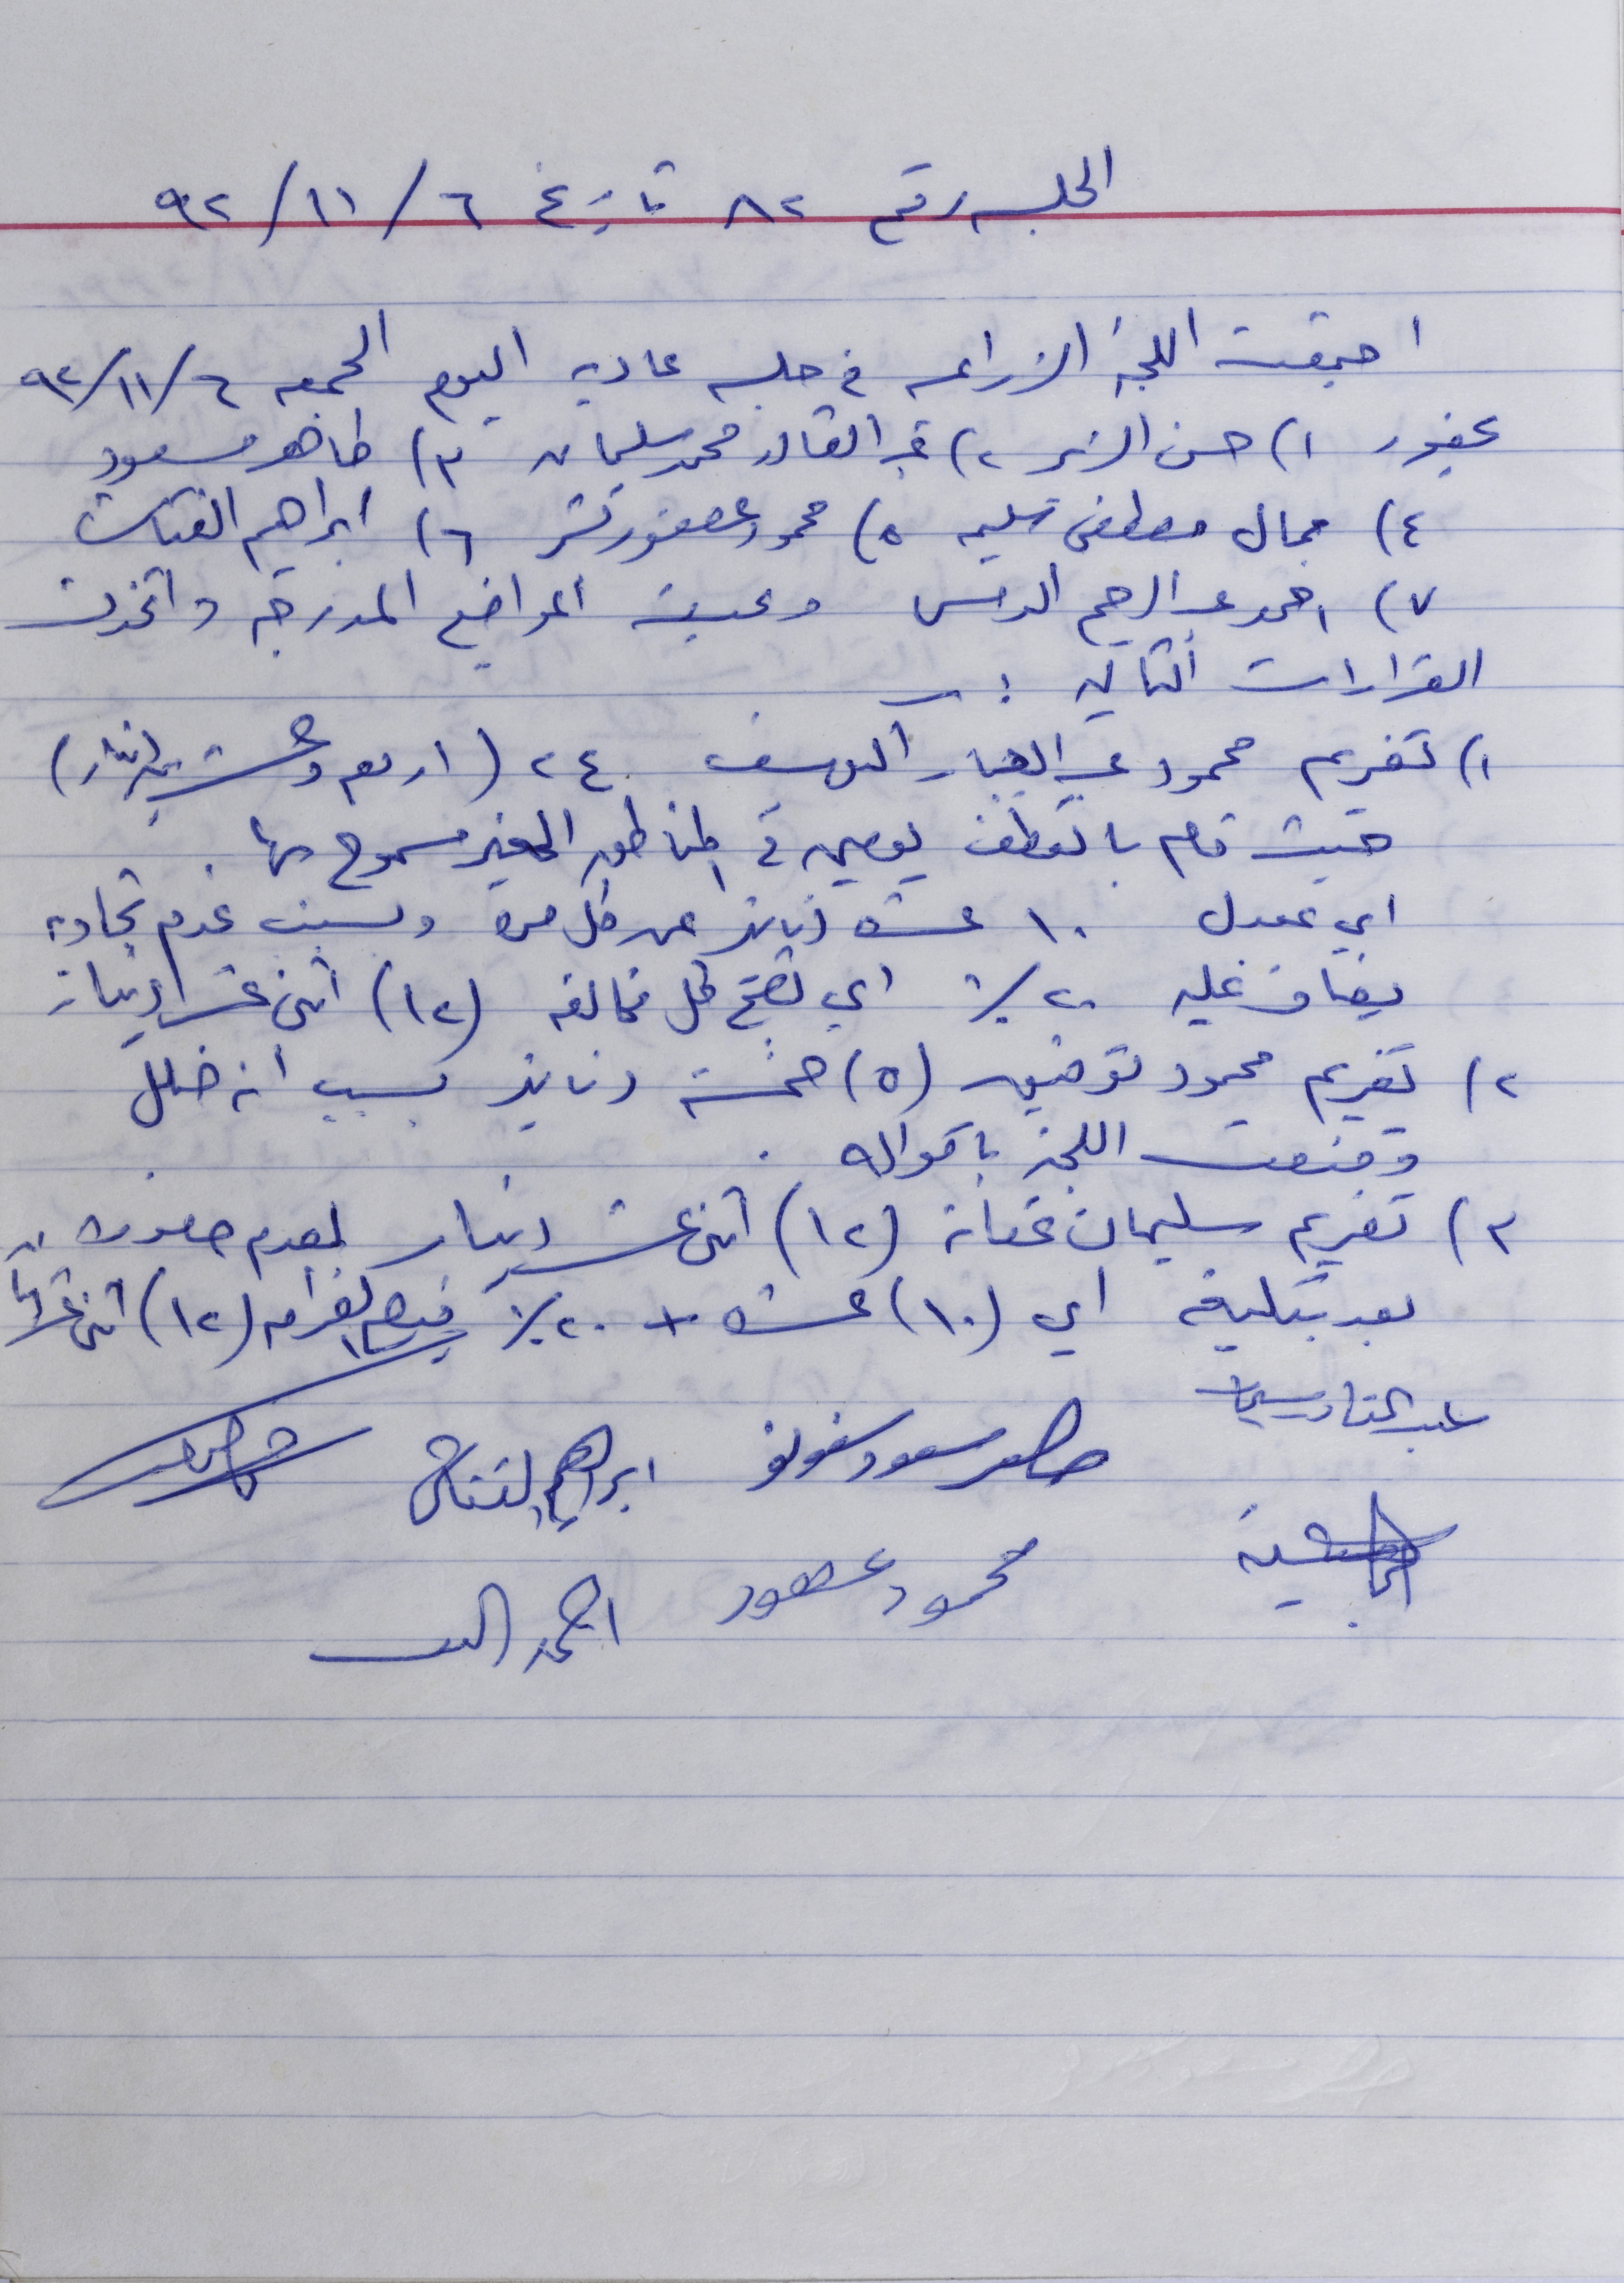 الجلسه رقم ٨٢ تاريخ ٦/١١/٩٢
اجتمعت اللجنة الزراعيه في جلسه عاديه اليوم الجمعه ٦/١١/٩٢
بحضور ١) حسن الزير ٢) عبد القادر محمد سليمان ٣) ظاهر مسعود
٤) جمال مصطفى سليم ٥) محمود عصفور نشر ٦) ابراهيم القتاش
٧) احمد عبد الرحيم الدبس وبحثت المواضيع المدرجه واتخذت
القرارات التاليه :ـ
١) تغريم محمود عبد الجبار اليوسف ٢٤ (اربع وعشرين دينار)
حيث قام بالقطف يومين في المناطق الغير مسموح بها .
اي بمعدل ١٠ عشره دنانير عن كل مره وبسبب عدم تجاوبه
يضاف عليه ٢٠٪ اي تصبح كل مخالفه (١٢) اثنى عشر دينار
٢) تغريم محمود توفيق (٥) خمسة دنانير بسبب أنه ضلل
وقنعت اللجنة باقواله .
٣) تغريم سليمان (١٢) اثنى عشر دينار لعدم حضوره
بعد تبليغه اي (١٠) عشره + ٢٠٪ فتصبح الغرامه (١٢) اثنى عشر ديناراً
عبد القادر سليمان
ظاهر مسعود
ابراهيم القتاش
محمود عصفور
احمد الدبس